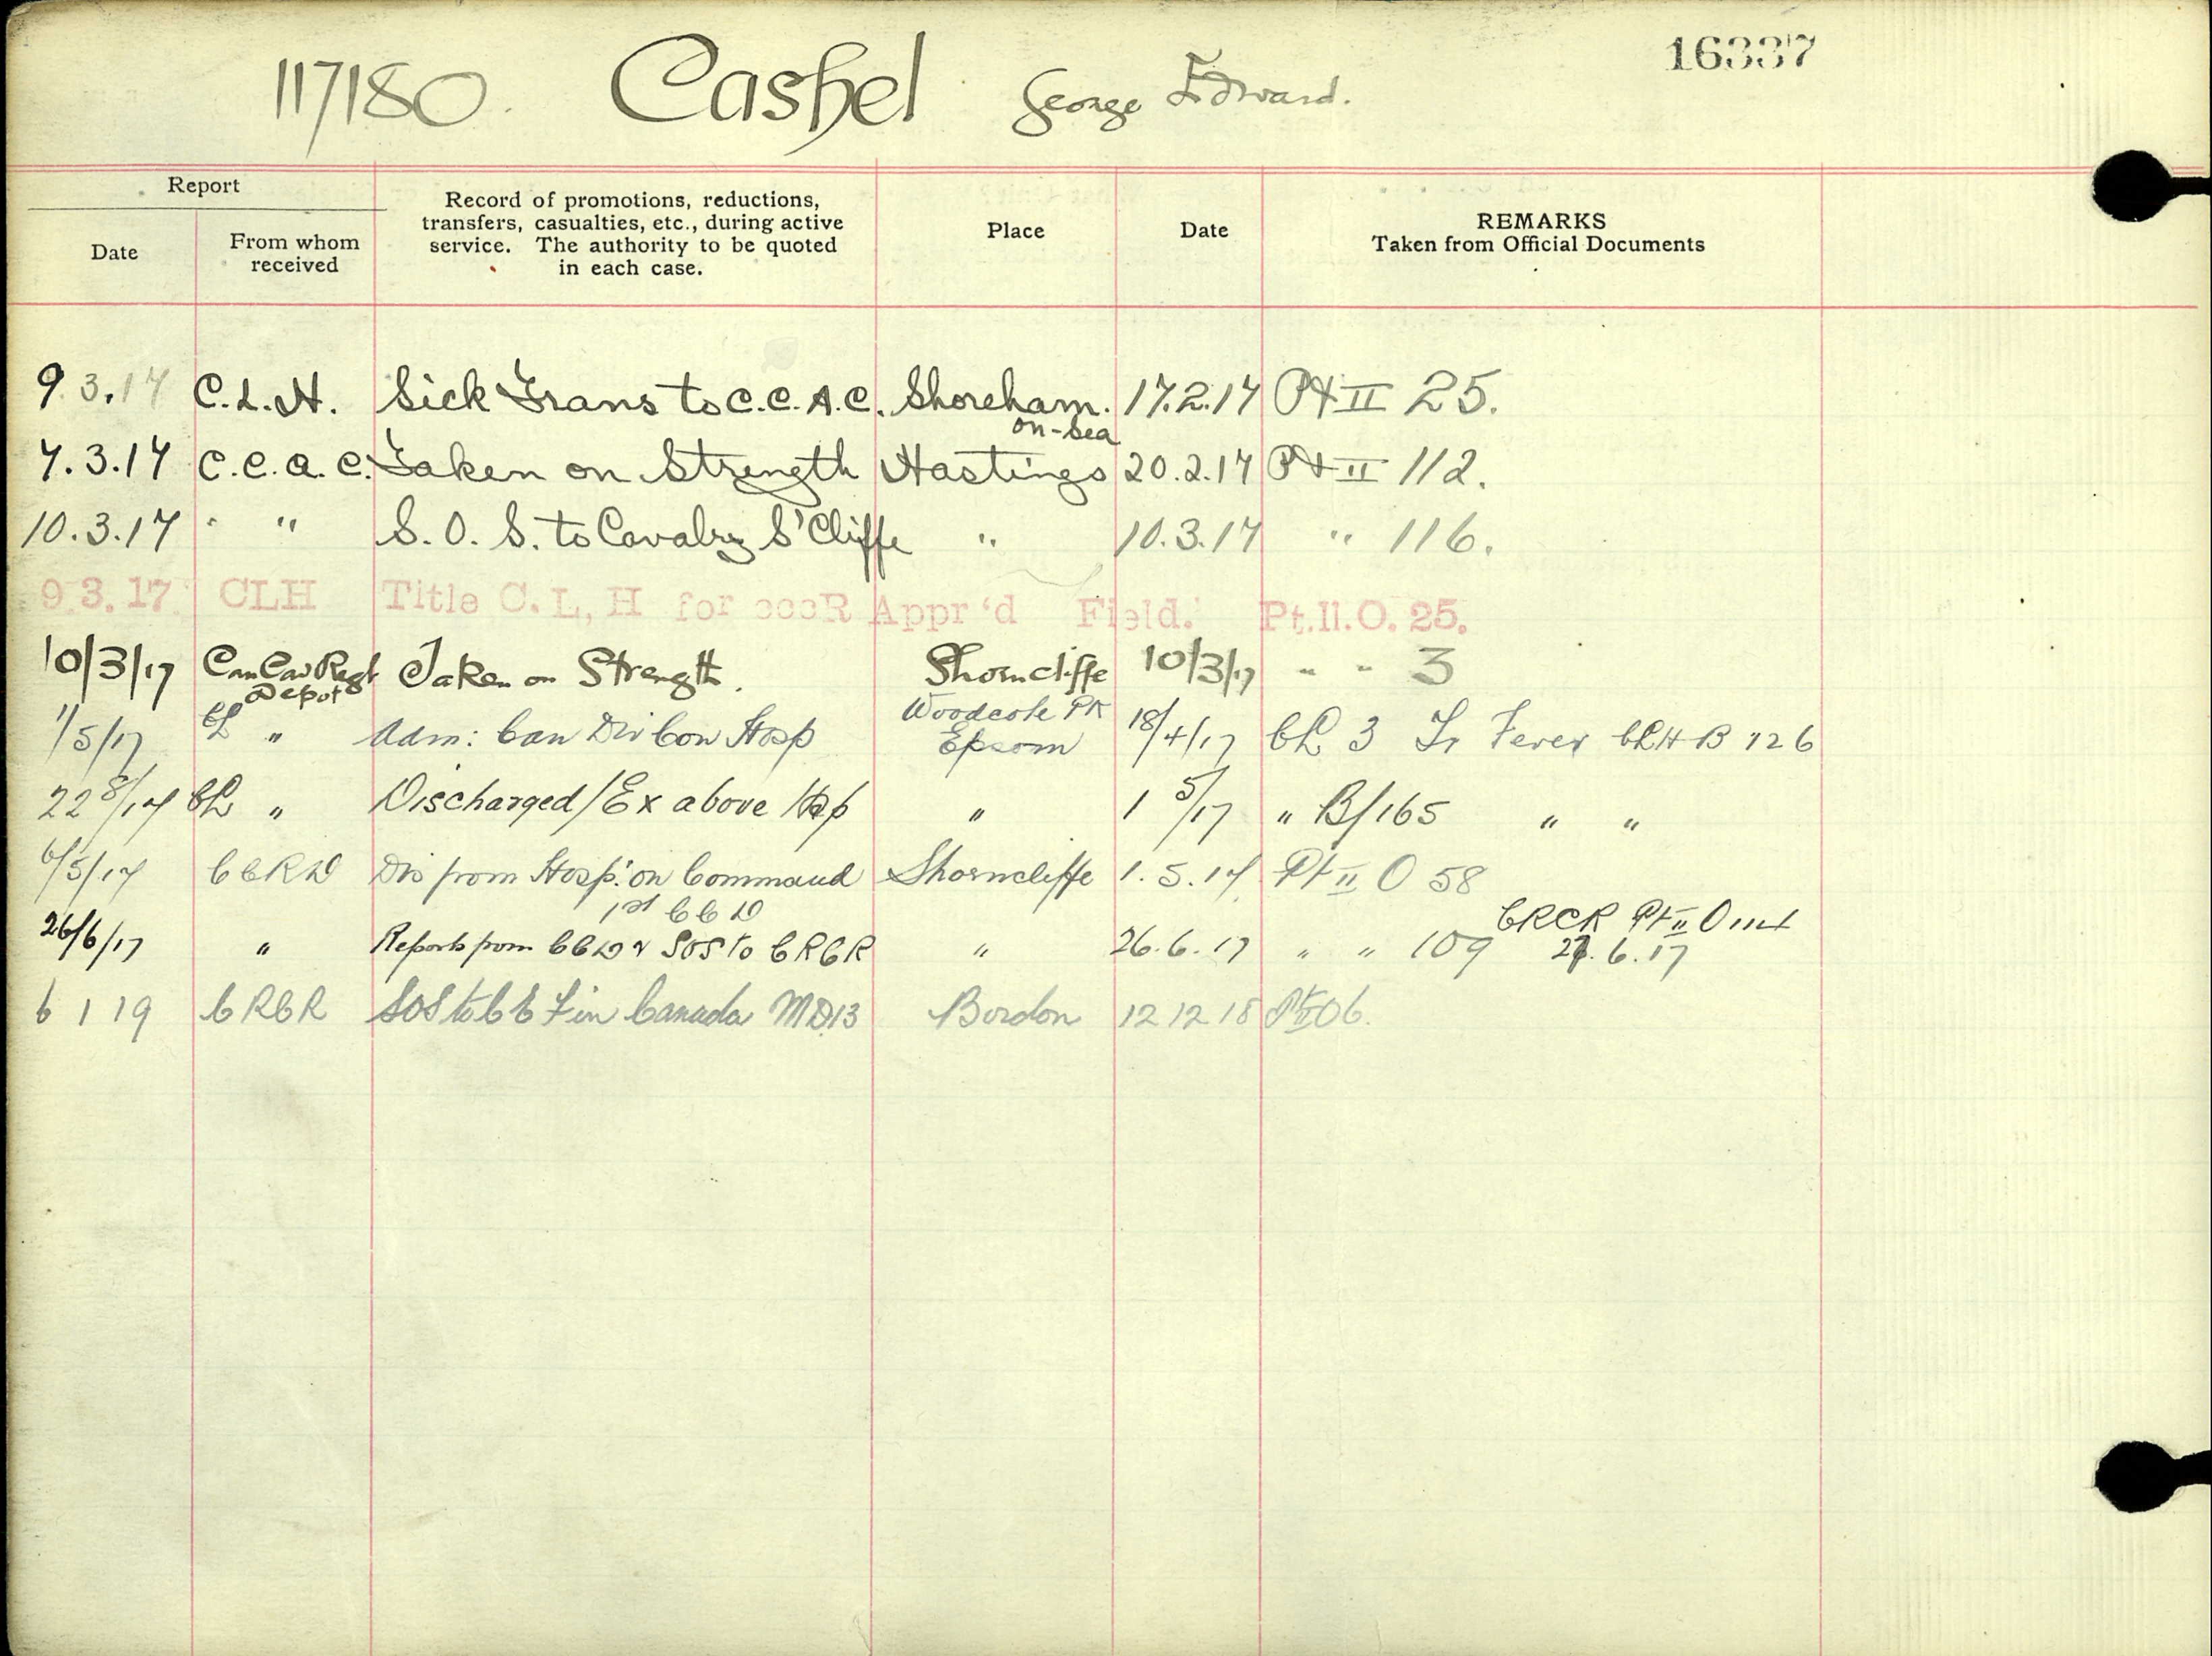 117180. Cashel George Edward.
16337
Report
Date
From whom
received
Record of promotions, reductions,
transfers, casualties, etc., during active
service. The authority to be quoted
in each case.
Place
Date
REMARKS
Taken from Official Documents
9.3.17 C.L.H. Sick Trans to C.C.A.C. Shoreham. on-Sea 17.2.17 Pt II 25.
7.3.17 C.C.A.C. Taken on Strength Hastings 20.2.17 Pt II 112.
10.3.17 " " S.O.S. to Cavalry S'Cliffe " 10.3.17 " 116.
9.3.17 CLH Title C.L,H for cccR Appr'd Field. Pt.II.O. 25.
10/3/17 Can Cav Regt Depot Taken on Strength. Shorncliffe 10/3/17 " " 3
1/5/17 CL " Adm: Can Div Con Hosp Woodcote Pk Epsom 18/4/17 CL 3 Tr Fever CLH B 126
22 8/17 CL " Discharged/Ex above Hosp " 1 5/17 " B/165 " "
6/5/17 CCRD Dis from Hosp: on Command 1st CCD Shorncliffe 1.5.17 Pt II O 58
26/6/17 " Reports from CCD & SOS to CRCR " 26.6.17 " " 109 CRCR Pt II O 27.6.17
6 1 19 CRCR SOS to CEF in Canada MD13 Bordon 12 12 18 Pt II O 6.